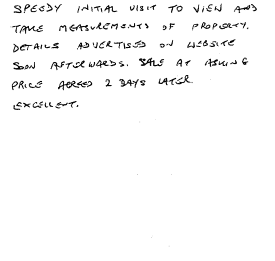 SPEEDY INITIAL VISIT TO VIEW AND
TAKE MEASUREMENTS OF PROPERTY.
DETAILS ADVERTISED ON WEBSITE
SOON AFTERWARDS. SALE AT ASKING
PRICE AGREED 2 DAYS LATER
EXCELLENT.